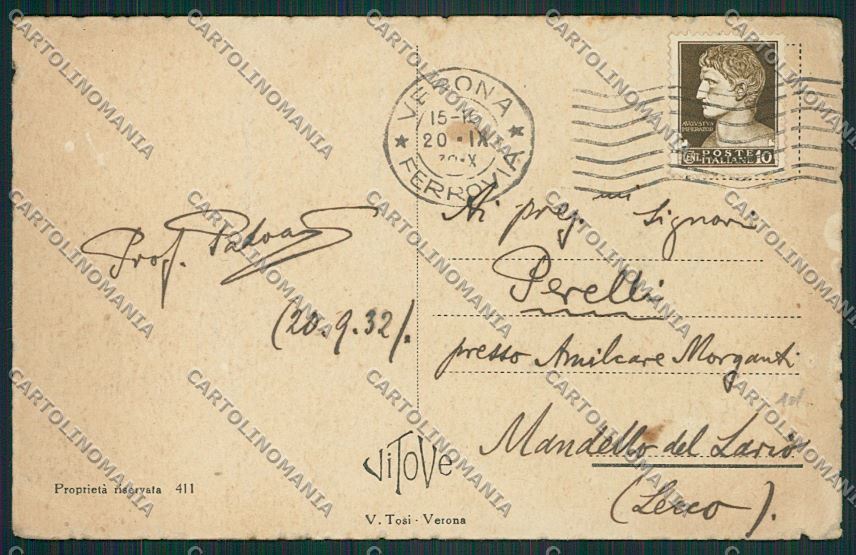 VERONA
15-1
20 · IX
FERROVIA
AVGVSTVS
IMPERATOR
POSTE
ITALIANE
10
Prof. Padoan
(20.9.32).
Ai preg.mi Signori
Perelli
presso Amilcare Morganti
Mandello del Lario
(Lecco).
ViToVe
Proprietà riservata 411
V. Tosi - Verona
CARTOLINOMANIA